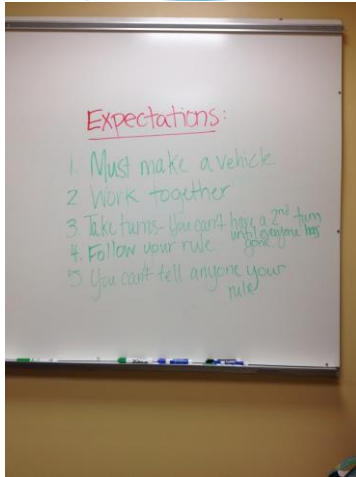 Expectations:
1. Must make a vehicle
2 Work together
3. Take turns- You can't have a 2nd turn
until everyone has
gone.
4. Follow your rule
5 You can't tell anyone your
rule